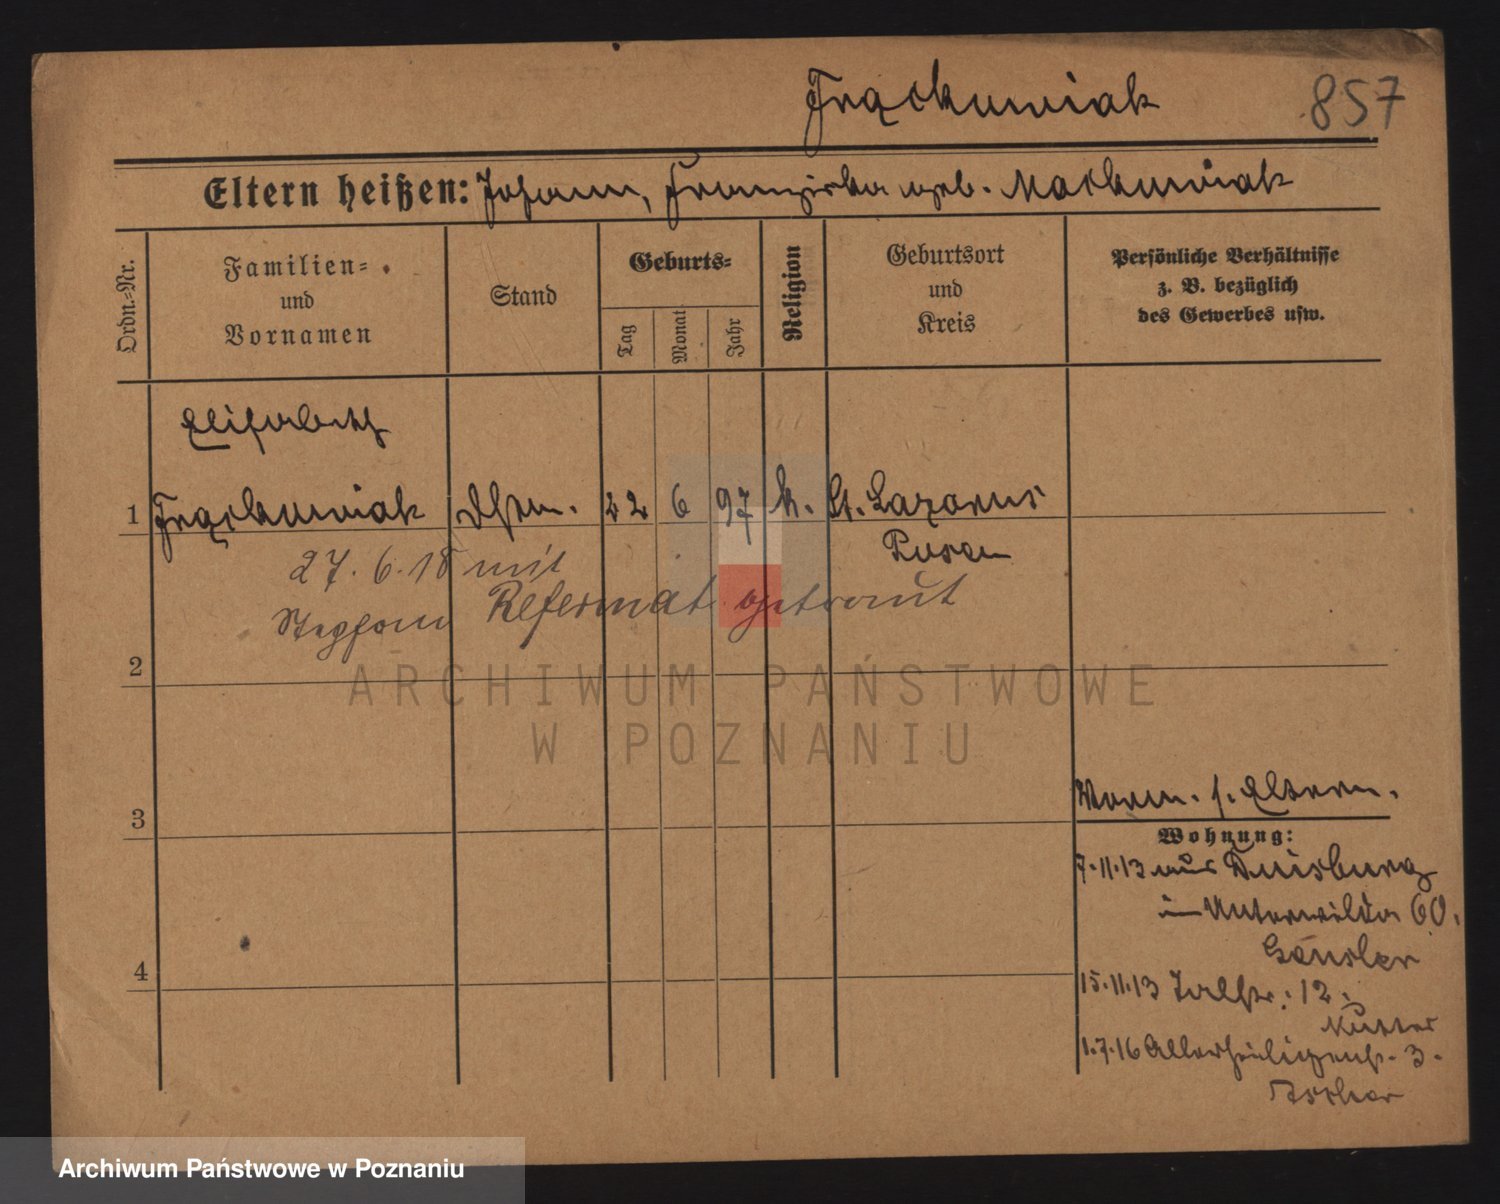 Frąckowiak 857
Eltern heißen: Johann, Franziska geb. Maćkowiak
Ordn.-Nr.
Familien-
und
Vornamen
Stand
Geburts-
Tag
Monat
Jahr
Religion
Geburtsort
und
Kreis
Persönliche Verhältnisse
z. B. bezüglich
des Gewerbes usw.
Elisabeth
1 Frąckowiak 22 6 97 k. St. Lazarus
Posen
27. 6. 18 mit
Stephan Reformat getraut
2
ARCHIWUM PAŃSTWOWE
W POZNANIU
3
4
Vorm. s. Eltern.
Wohnung:
7.11.13 aus Duisburg
in Unterwilda 60.
15.11.13 Talstr. 12.
1.7.16 Allerheiligenstr. 3.
Archiwum Państwowe w Poznaniu